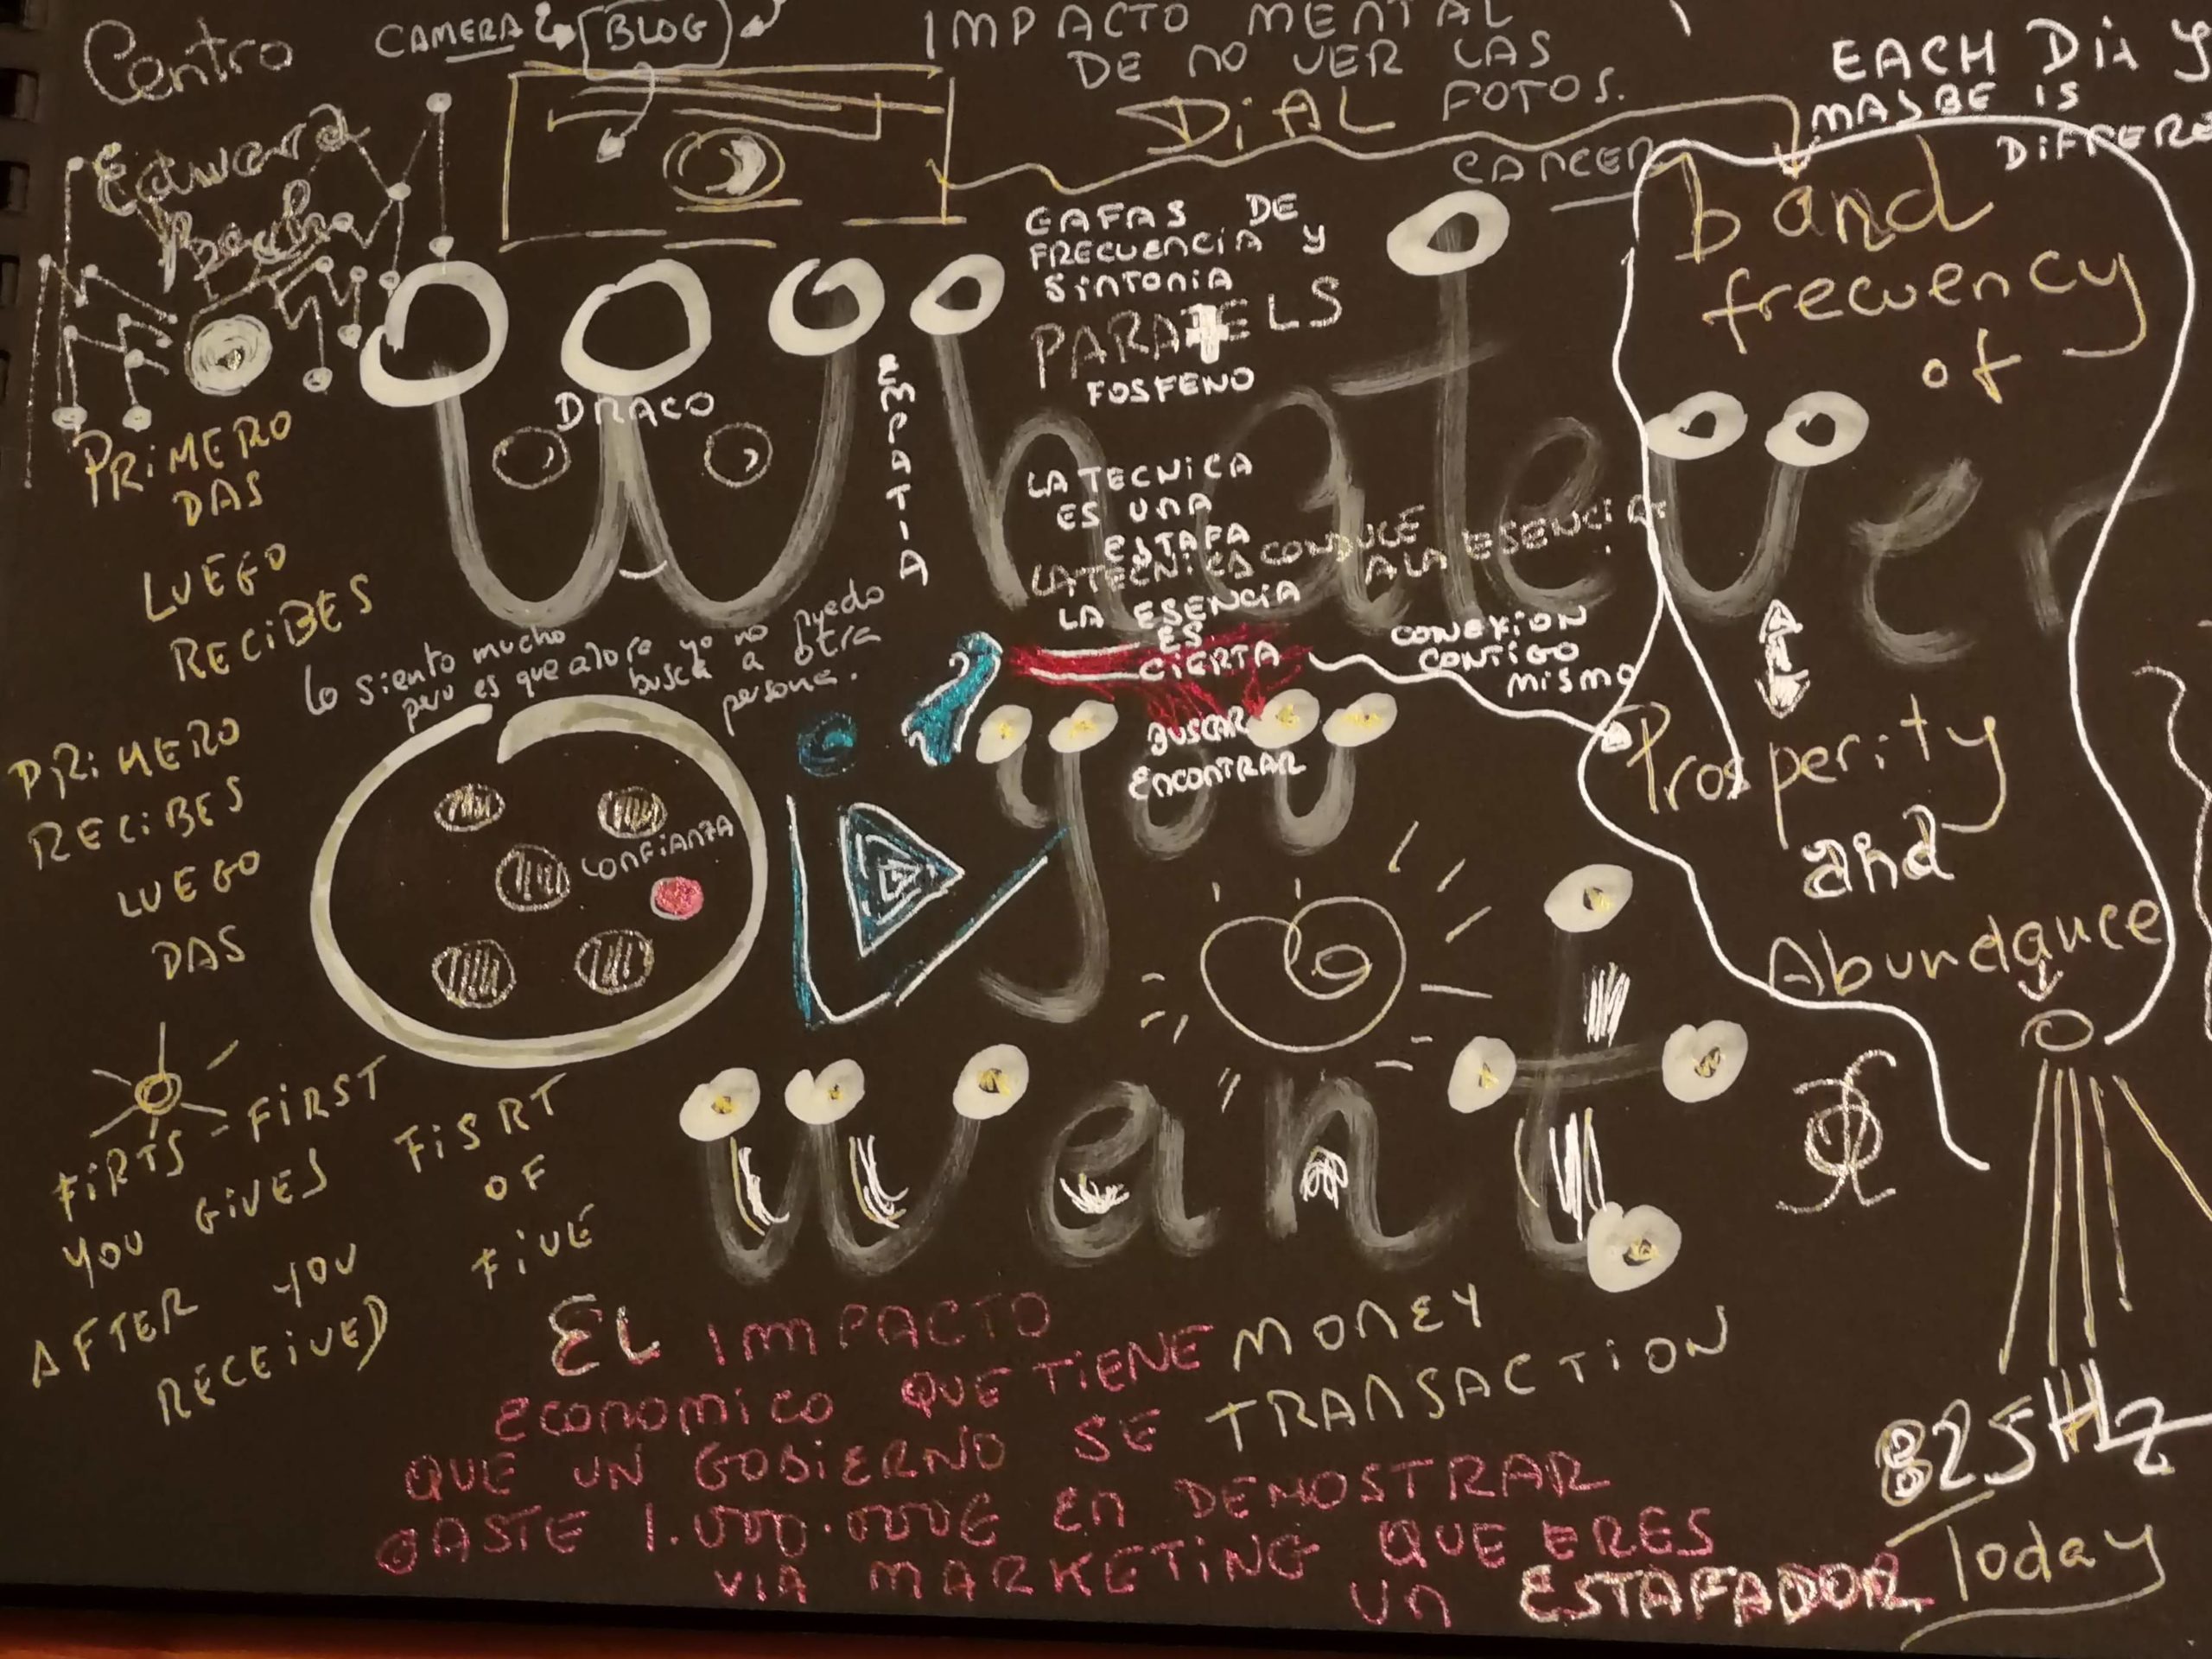 Centro
Edward
Bach
CAMERA
BLOG
IMPACTO MENTAL
DE NO VER LAS
FOTOS.
DIAL
CANCER
EACH DIA Y
MASBE IS
DIFRERE
band
frecuency
of
GAFAS DE
FRECUENCIA Y
SINTONIA
FOSFENO
DRACO
EMPATIA
Whatever
LA TECNICA
ES UNA
ESTAFA
LA TECNICA CONDUCE
A LA ESENCIA
LA ESENCIA
ES
CIERTA
CONEXION
CONTIGO
MISMO
PRIMERO
DAS
LUEGO
RECIBES
PRIMERO
RECIBES
LUEGO
DAS
Lo siento mucho
pero es que ahora yo no puedo
busca a otra
persona.
CONFIANZA
you
BUSCAR
ENCONTRAR
Prosperity
and
Abundance
want
FIRTS - FIRST
YOU GIVES
AFTER YOU
RECEIVED
FISRT
OF
FIVE
EL IMPACTO
ECONOMICO QUE TIENE
QUE UN GOBIERNO SE
GASTE 1.000.000€ EN DEMOSTRAR
VIA MARKETING QUE ERES
UN ESTAFADOR
MONEY
TRANSACTION
825Hz
Today